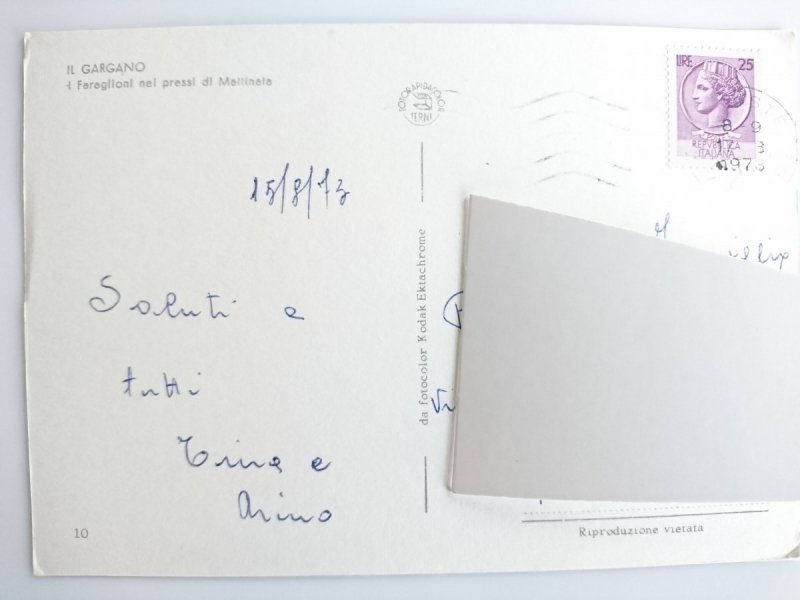 IL GARGANO
I Faraglioni nei pressi di Mattinata
FOTORAPIDACOLOR
TERNI
LIRE 25
REPVBBLICA
ITALIANA
8-9
1973
15/8/73
Saluti a
tutti
e
da fotocolor Kodak Ektachrome
10
Riproduzione vietata